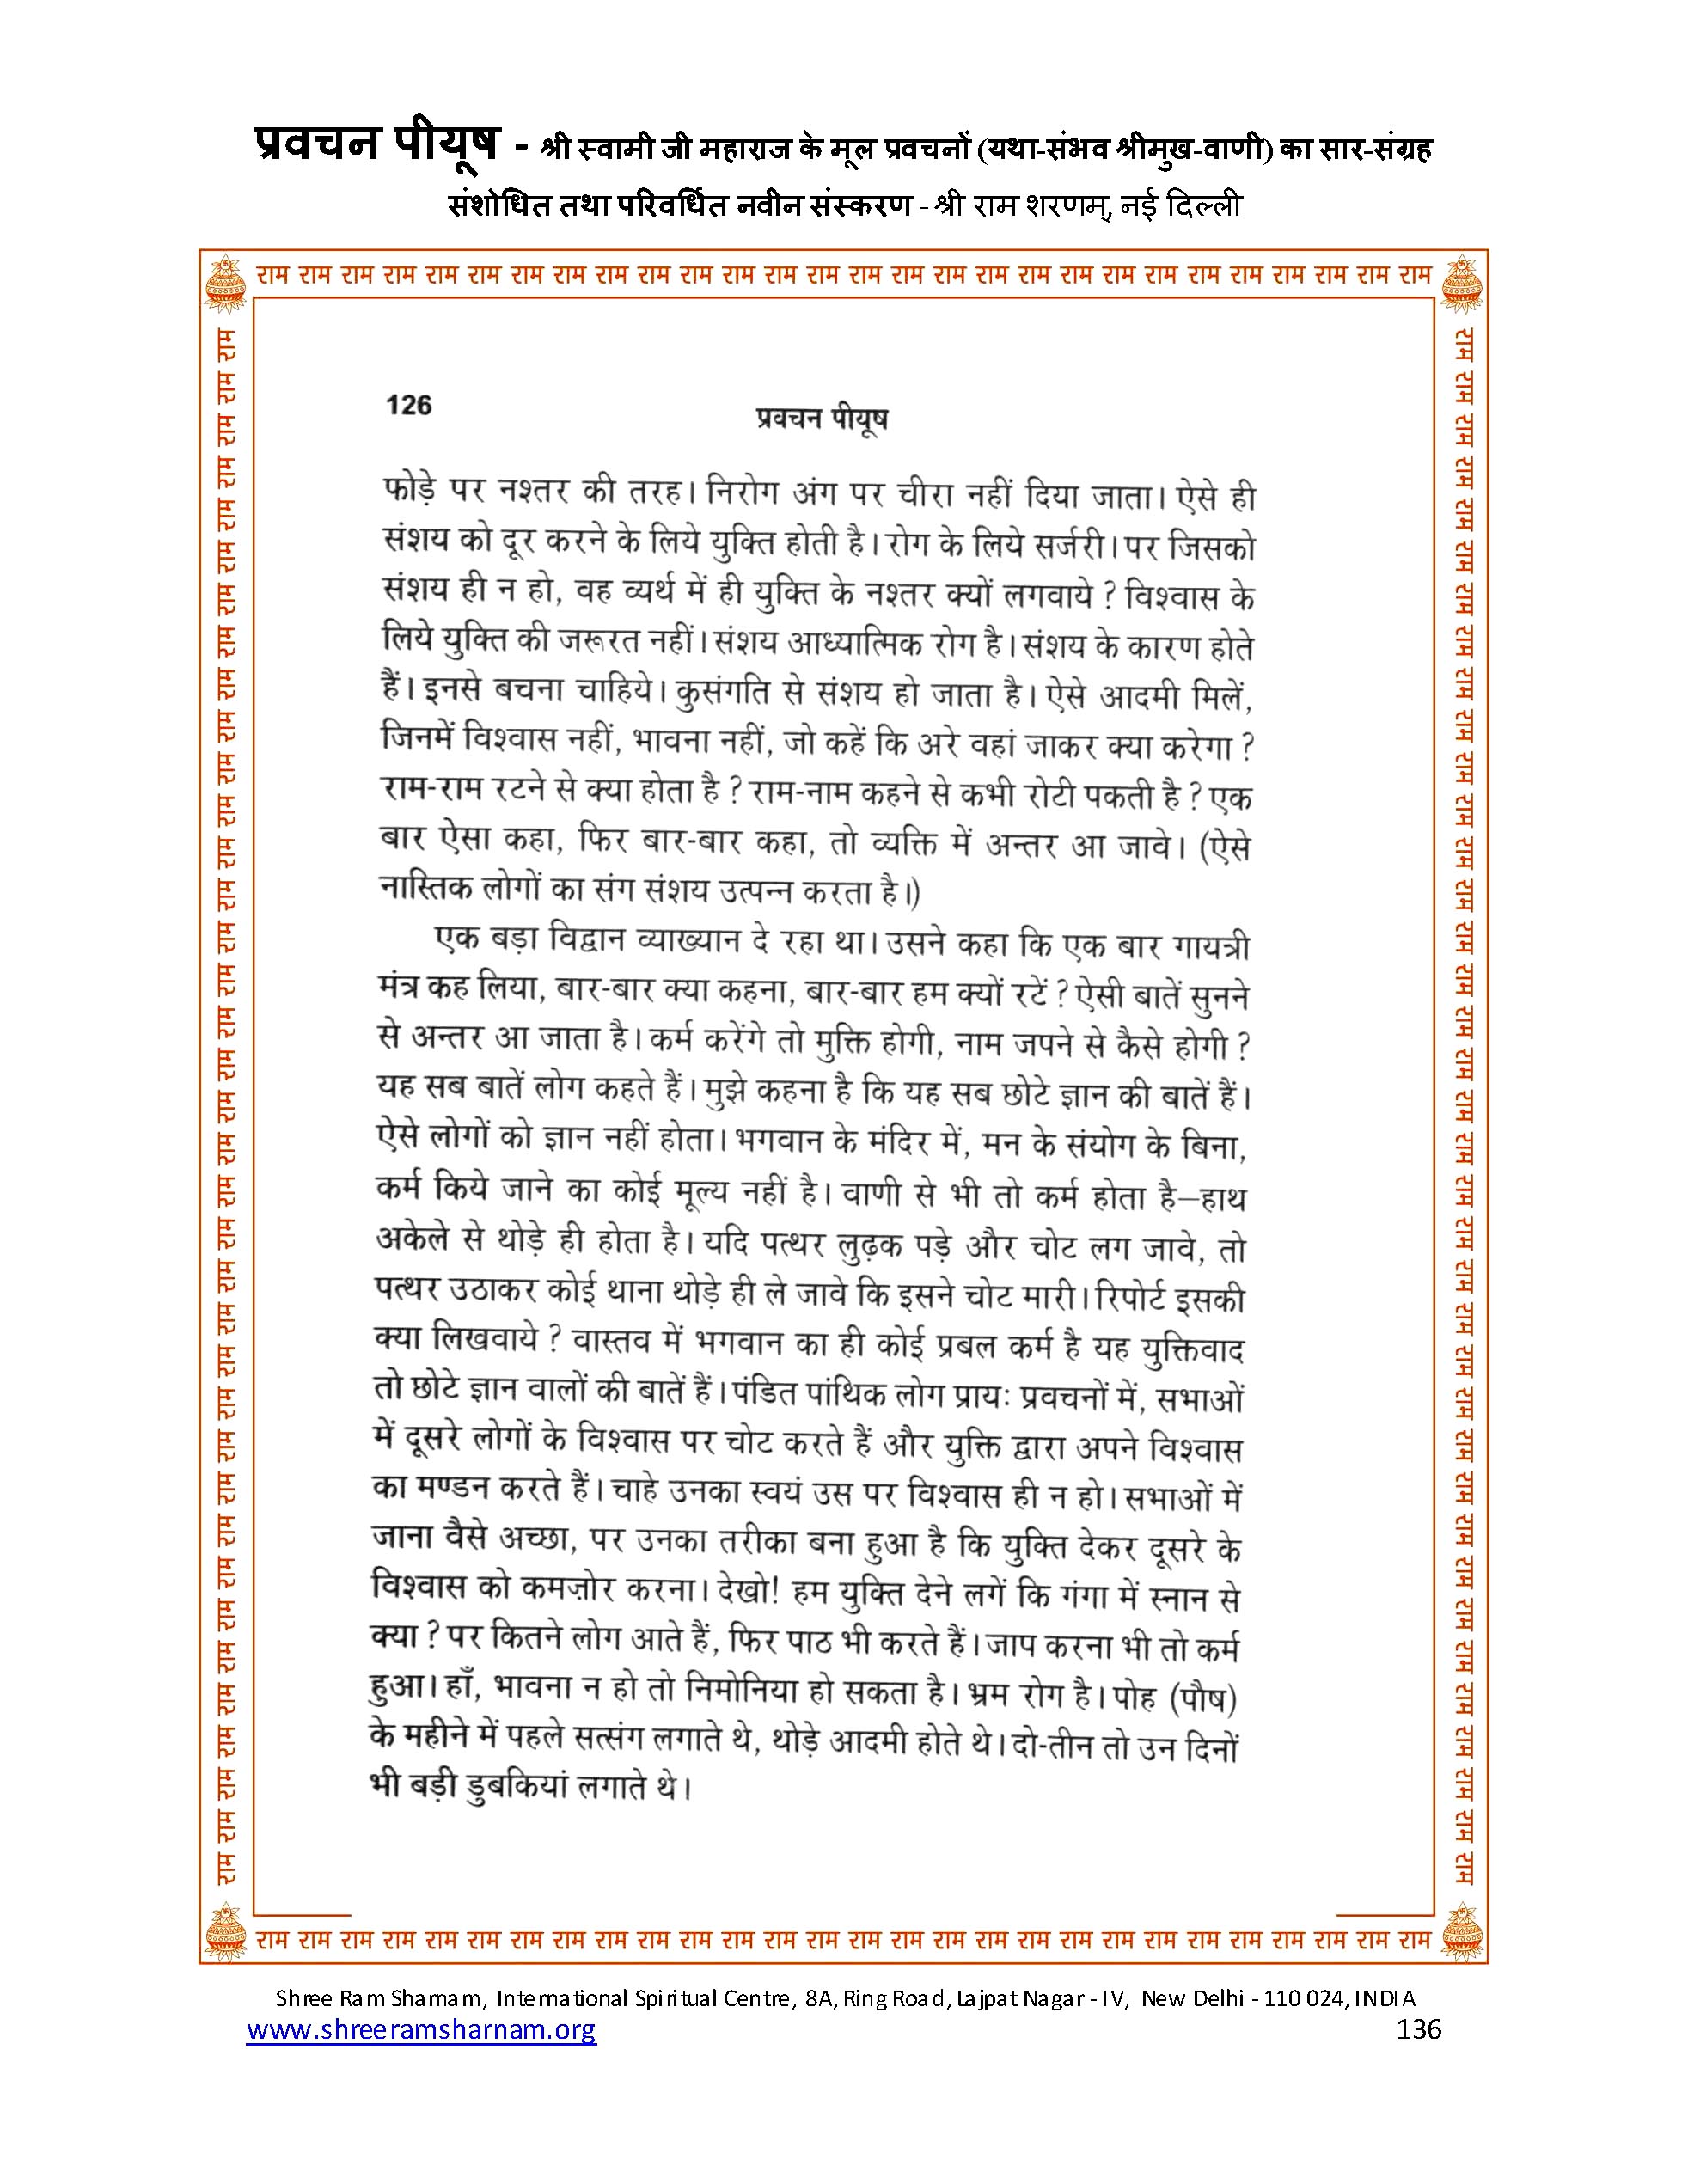 प्रवचन पीयूष - श्री स्वामी जी महाराज के मूल प्रवचनों (यथा-संभव श्रीमुख-वाणी) का सार-संग्रह
संशोधित तथा परिवर्धित नवीन संस्करण - श्री राम शरणम्, नई दिल्ली
राम राम राम राम राम राम राम राम राम राम राम राम राम राम राम राम राम राम राम राम राम राम राम राम राम राम राम राम
126
प्रवचन पीयूष
फोड़े पर नश्तर की तरह। निरोग अंग पर चीरा नहीं दिया जाता। ऐसे ही
संशय को दूर करने के लिये युक्ति होती है। रोग के लिये सर्जरी। पर जिसको
संशय ही न हो, वह व्यर्थ में ही युक्ति के नश्तर क्यों लगवाये ? विश्वास के
लिये युक्ति की जरूरत नहीं। संशय आध्यात्मिक रोग है। संशय के कारण होते
हैं। इनसे बचना चाहिये। कुसंगति से संशय हो जाता है। ऐसे आदमी मिलें,
जिनमें विश्वास नहीं, भावना नहीं, जो कहें कि अरे वहां जाकर क्या करेगा ?
राम-राम रटने से क्या होता है ? राम-नाम कहने से कभी रोटी पकती है ? एक
बार ऐसा कहा, फिर बार-बार कहा, तो व्यक्ति में अन्तर आ जावे। (ऐसे
नास्तिक लोगों का संग संशय उत्पन्न करता है।)
एक बड़ा विद्वान व्याख्यान दे रहा था। उसने कहा कि एक बार गायत्री
मंत्र कह लिया, बार-बार क्या कहना, बार-बार हम क्यों रटें ? ऐसी बातें सुनने
से अन्तर आ जाता है। कर्म करेंगे तो मुक्ति होगी, नाम जपने से कैसे होगी ?
यह सब बातें लोग कहते हैं। मुझे कहना है कि यह सब छोटे ज्ञान की बातें हैं।
ऐसे लोगों को ज्ञान नहीं होता। भगवान के मंदिर में, मन के संयोग के बिना,
कर्म किये जाने का कोई मूल्य नहीं है। वाणी से भी तो कर्म होता है–हाथ
अकेले से थोड़े ही होता है। यदि पत्थर लुढ़क पड़े और चोट लग जावे, तो
पत्थर उठाकर कोई थाना थोड़े ही ले जावे कि इसने चोट मारी। रिपोर्ट इसकी
क्या लिखवाये ? वास्तव में भगवान का ही कोई प्रबल कर्म है यह युक्तिवाद
तो छोटे ज्ञान वालों की बातें हैं। पंडित पांथिक लोग प्रायः प्रवचनों में, सभाओं
में दूसरे लोगों के विश्वास पर चोट करते हैं और युक्ति द्वारा अपने विश्वास
का मण्डन करते हैं। चाहे उनका स्वयं उस पर विश्वास ही न हो। सभाओं में
जाना वैसे अच्छा, पर उनका तरीका बना हुआ है कि युक्ति देकर दूसरे के
विश्वास को कमज़ोर करना। देखो! हम युक्ति देने लगें कि गंगा में स्नान से
क्या ? पर कितने लोग आते हैं, फिर पाठ भी करते हैं। जाप करना भी तो कर्म
हुआ। हाँ, भावना न हो तो निमोनिया हो सकता है। भ्रम रोग है। पोह (पौष)
के महीने में पहले सत्संग लगाते थे, थोड़े आदमी होते थे। दो-तीन तो उन दिनों
भी बड़ी डुबकियां लगाते थे।
राम राम राम राम राम राम राम राम राम राम राम राम राम राम राम राम राम राम राम राम राम राम राम राम राम राम राम राम
राम राम राम राम राम राम राम राम राम राम राम राम राम राम राम राम राम राम राम राम राम राम राम राम राम राम राम राम राम राम राम राम राम राम राम राम राम
राम राम राम राम राम राम राम राम राम राम राम राम राम राम राम राम राम राम राम राम राम राम राम राम राम राम राम राम राम राम राम राम राम राम राम राम राम
Shree Ram Sharnam, International Spiritual Centre, 8A, Ring Road, Lajpat Nagar - IV, New Delhi - 110 024, INDIA
www.shreeramsharnam.org 136